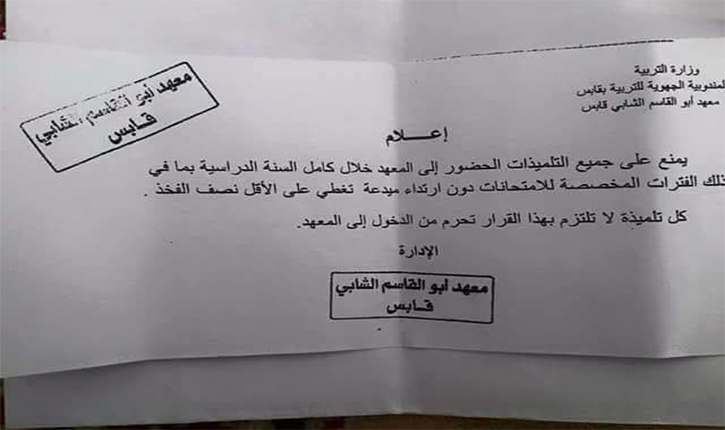 وزارة التربية
المندوبية الجهوية للتربية بقابس
معهد أبو القاسم الشابي قابس
معهد أبو القاسم الشابي
قابس
إعلام
يمنع على جميع التلميذات الحضور إلى المعهد خلال كامل السنة الدراسية بما في
ذلك الفترات المخصصة للامتحانات دون ارتداء ميدعة تغطي على الأقل نصف الفخذ .
كل تلميذة لا تلتزم بهذا القرار تحرم من الدخول إلى المعهد.
الإدارة
معهد أبو القاسم الشابي
قابس